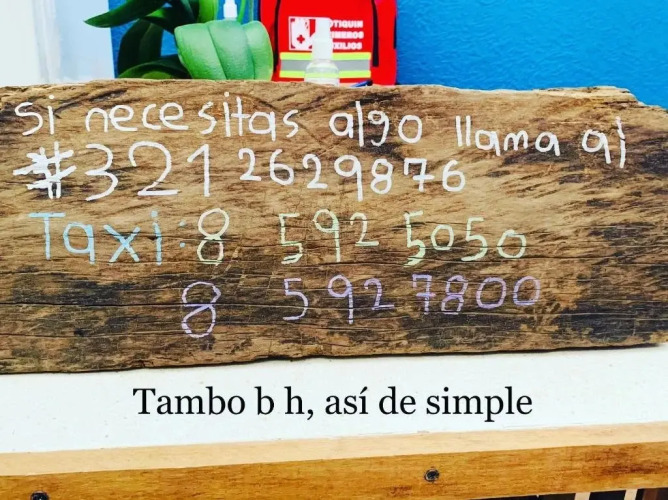 BOTIQUIN
PRIMEROS
AUXILIOS
si necesitas algo llama al
#321 2629876
Taxi: 8 592 5050
8 592 7800
Tambo b h, así de simple